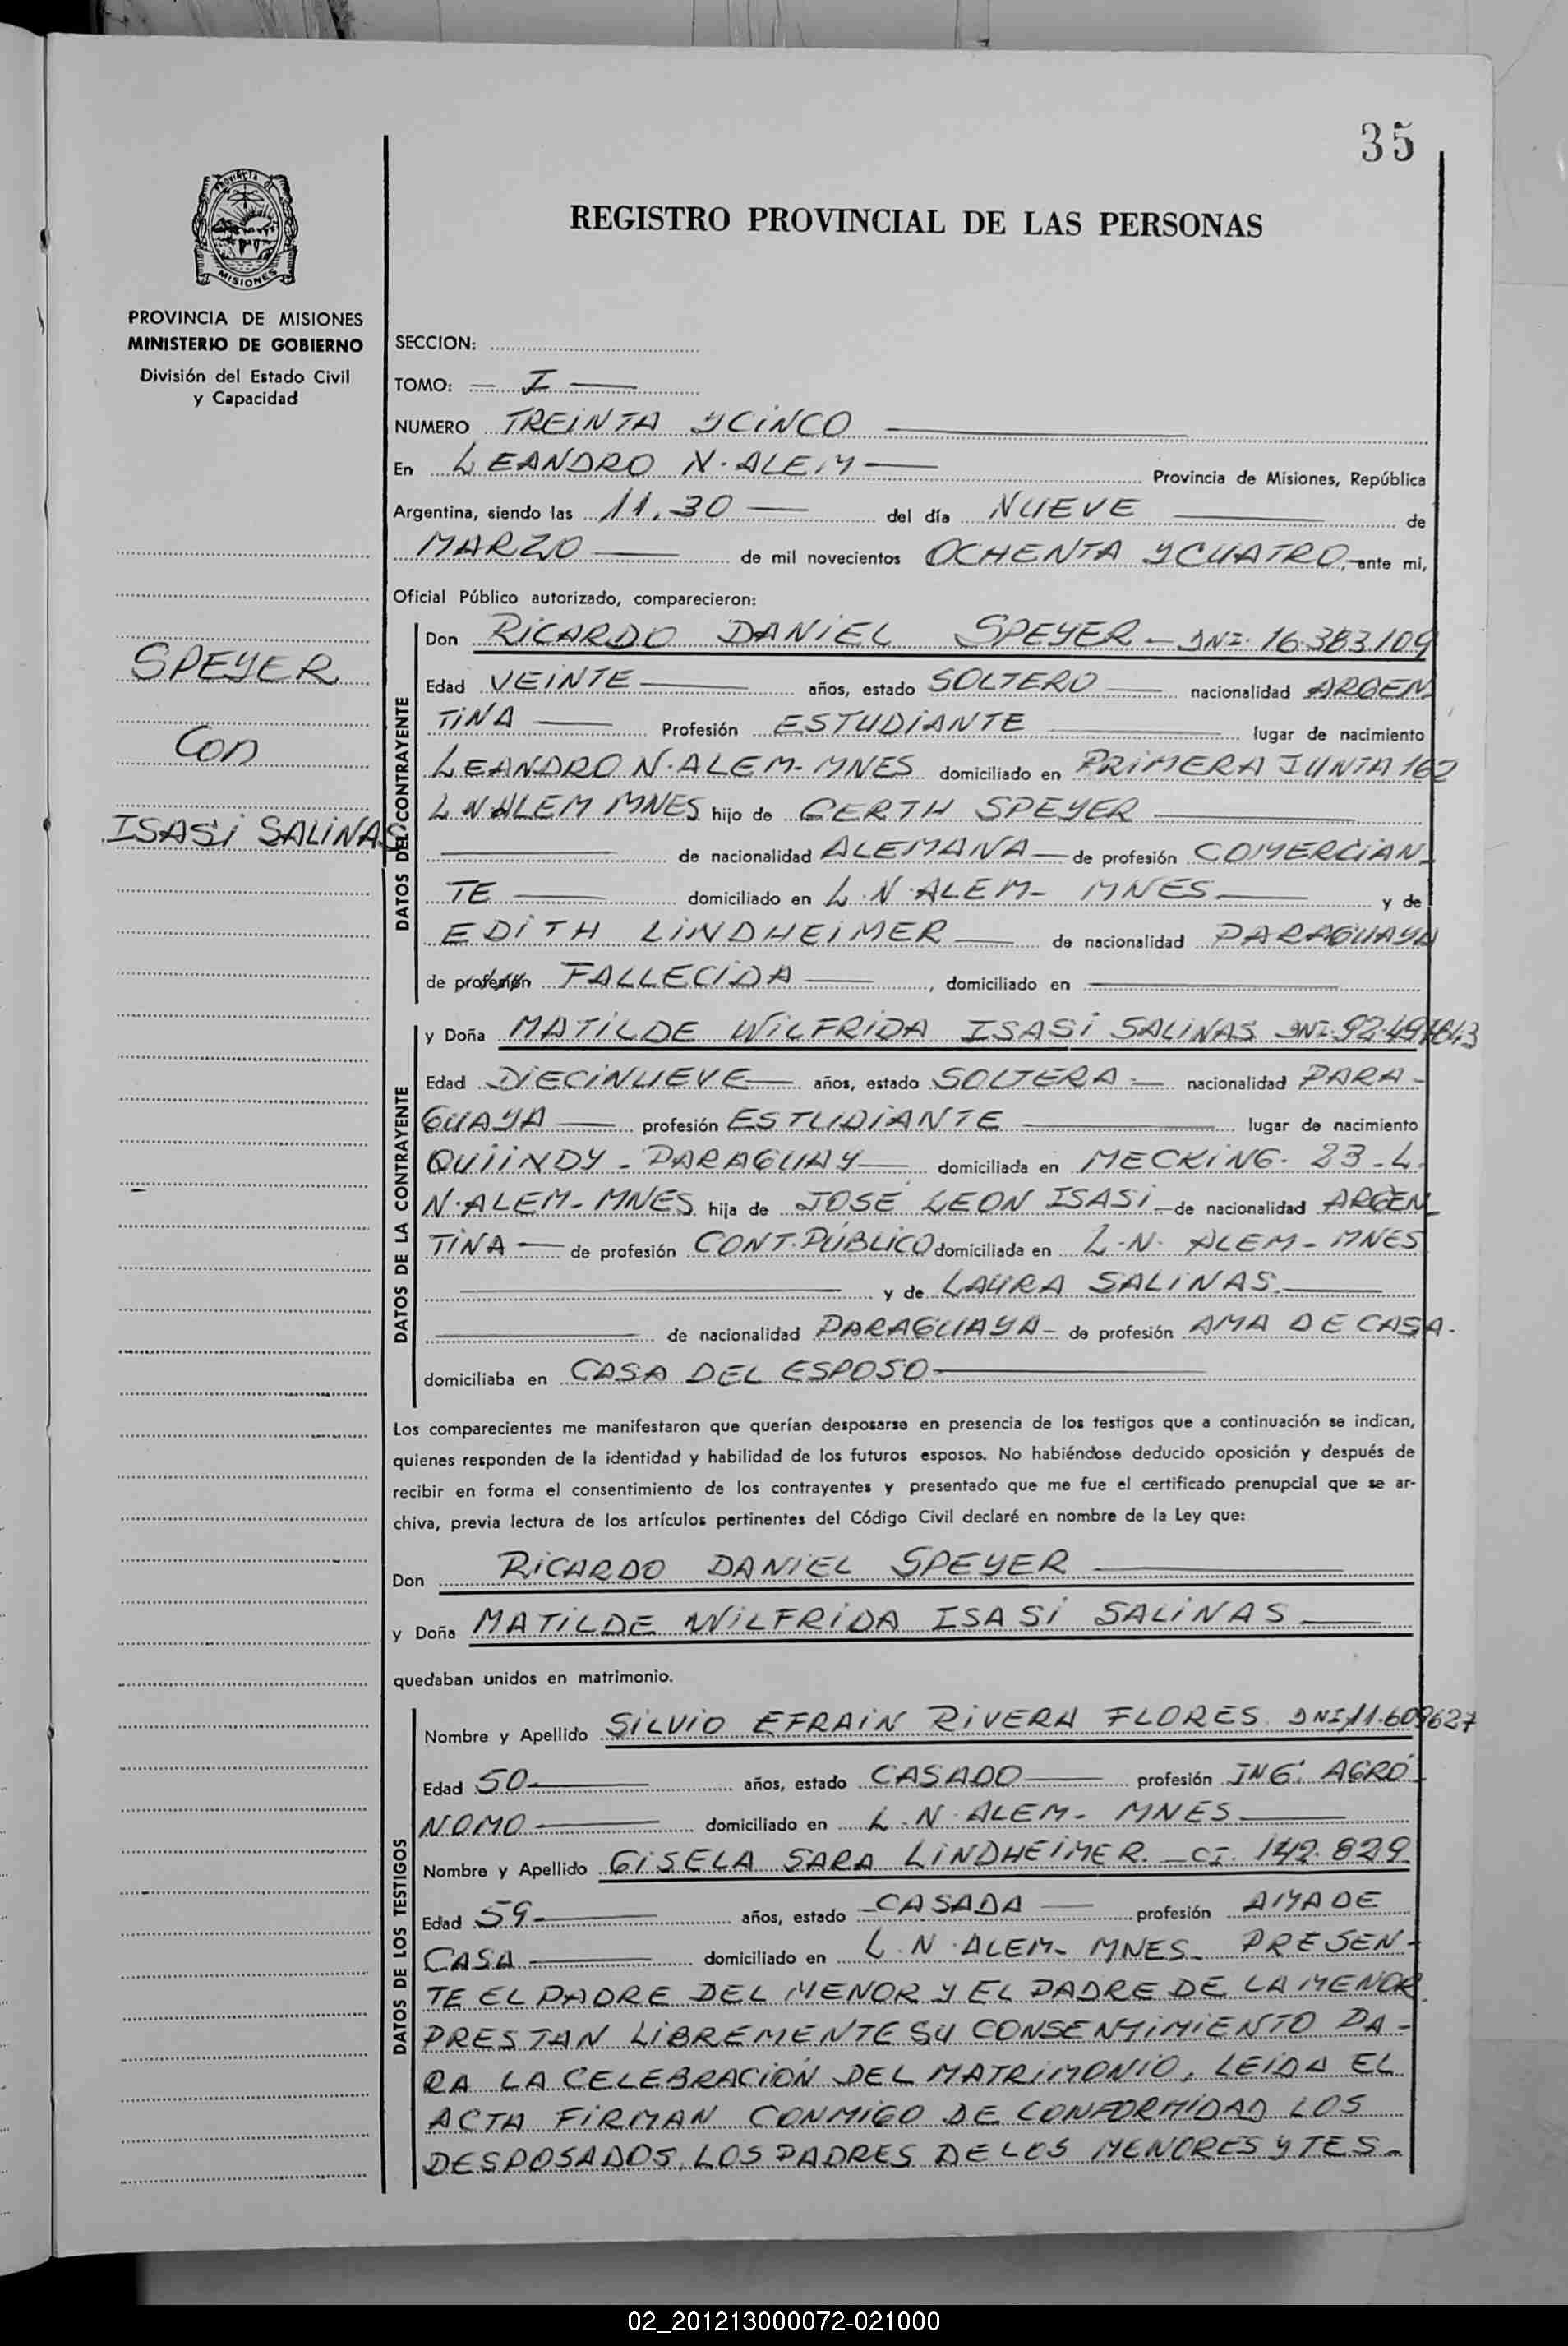 35
PROVINCIA DE
MISIONES
REGISTRO PROVINCIAL DE LAS PERSONAS
PROVINCIA DE MISIONES
MINISTERIO DE GOBIERNO
División del Estado Civil
y Capacidad
SPEYER
Con
ISASi SALiNAS
SECCION:
TOMO: — I —
NUMERO TREiNTA YCiNCO
En LEANDRO N. ALEM — Provincia de Misiones, República
Argentina, siendo las 11.30 — del día NUEVE — de
MARZO — de mil novecientos OCHENTA YCUATRO, ante mi,
Oficial Público autorizado, comparecieron:
DATOS DEL CONTRAYENTE
Don RiCARDO DANiEL SPEYER — DNI. 16.383.109
Edad VEiNTE — años, estado SOLTERO — nacionalidad ARGEN
TiNA — Profesión ESTUDiANTE — lugar de nacimiento
LEANDRO N. ALEM- MNES domiciliado en PRiMERA JUNTA 162
L N ALEM MNES hijo de GERTH SPEYER —
— de nacionalidad ALEMANA — de profesión COMERCiAN-
TE — domiciliado en L. N. ALEM- MNES — y de
EDiTH LiNDHEiMER — de nacionalidad PARAGUAYA
de profesión FALLECiDA —, domiciliado en —
DATOS DE LA CONTRAYENTE
y Doña MATiLDE WiLFRiDA ISASi SALiNAS DNI. 92.491843
Edad DiECiNUEVE — años, estado SOLTERA — nacionalidad PARA-
GUAYA — profesión ESTUDiANTE — lugar de nacimiento
QUiiNDY - PARAGUAY — domiciliada en MECKiNG. 23 - L.
N. ALEM- MNES hija de JOSÉ LEON ISASi — de nacionalidad ARGEN-
TiNA — de profesión CONT. PÚBLiCO domiciliada en L. N. ALEM - MNES
— y de LAURA SALiNAS. —
— de nacionalidad PARAGUAYA - de profesión AMA DE CASA.
domiciliaba en CASA DEL ESPOSO —
Los comparecientes me manifestaron que querían desposarse en presencia de los testigos que a continuación se indican,
quienes responden de la identidad y habilidad de los futuros esposos. No habiéndose deducido oposición y después de
recibir en forma el consentimiento de los contrayentes y presentado que me fue el certificado prenupcial que se ar-
chiva, previa lectura de los artículos pertinentes del Código Civil declaré en nombre de la Ley que:
Don RiCARDO DANiEL SPEYER —
y Doña MATiLDE WiLFRiDA ISASi SALiNAS —
quedaban unidos en matrimonio.
DATOS DE LOS TESTIGOS
Nombre y Apellido SiLViO EFRAiN RiVERA FLORES DNI 11.609627
Edad 50 — años, estado CASADO — profesión ING. AGRÓ-
NOMO — domiciliado en L. N. ALEM- MNES —
Nombre y Apellido GiSELA SARA LiNDHEiMER. — CI. 142.829
Edad 59 — años, estado CASADA — profesión AMA DE
CASA — domiciliado en L. N. ALEM- MNES - PRESEN-
TE EL PADRE DEL MENOR Y EL PADRE DE LA MENOR
PRESTAN LiBREMENTE SU CONSENTiMiENTO PA-
RA LA CELEBRACiÓN DEL MATRiMONiO, LEiDA EL
ACTA FiRMAN CONMiGO DE CONFORMiDAD LOS
DESPOSADOS, LOS PADRES DE LOS MENORES Y TES-
02_201213000072-021000